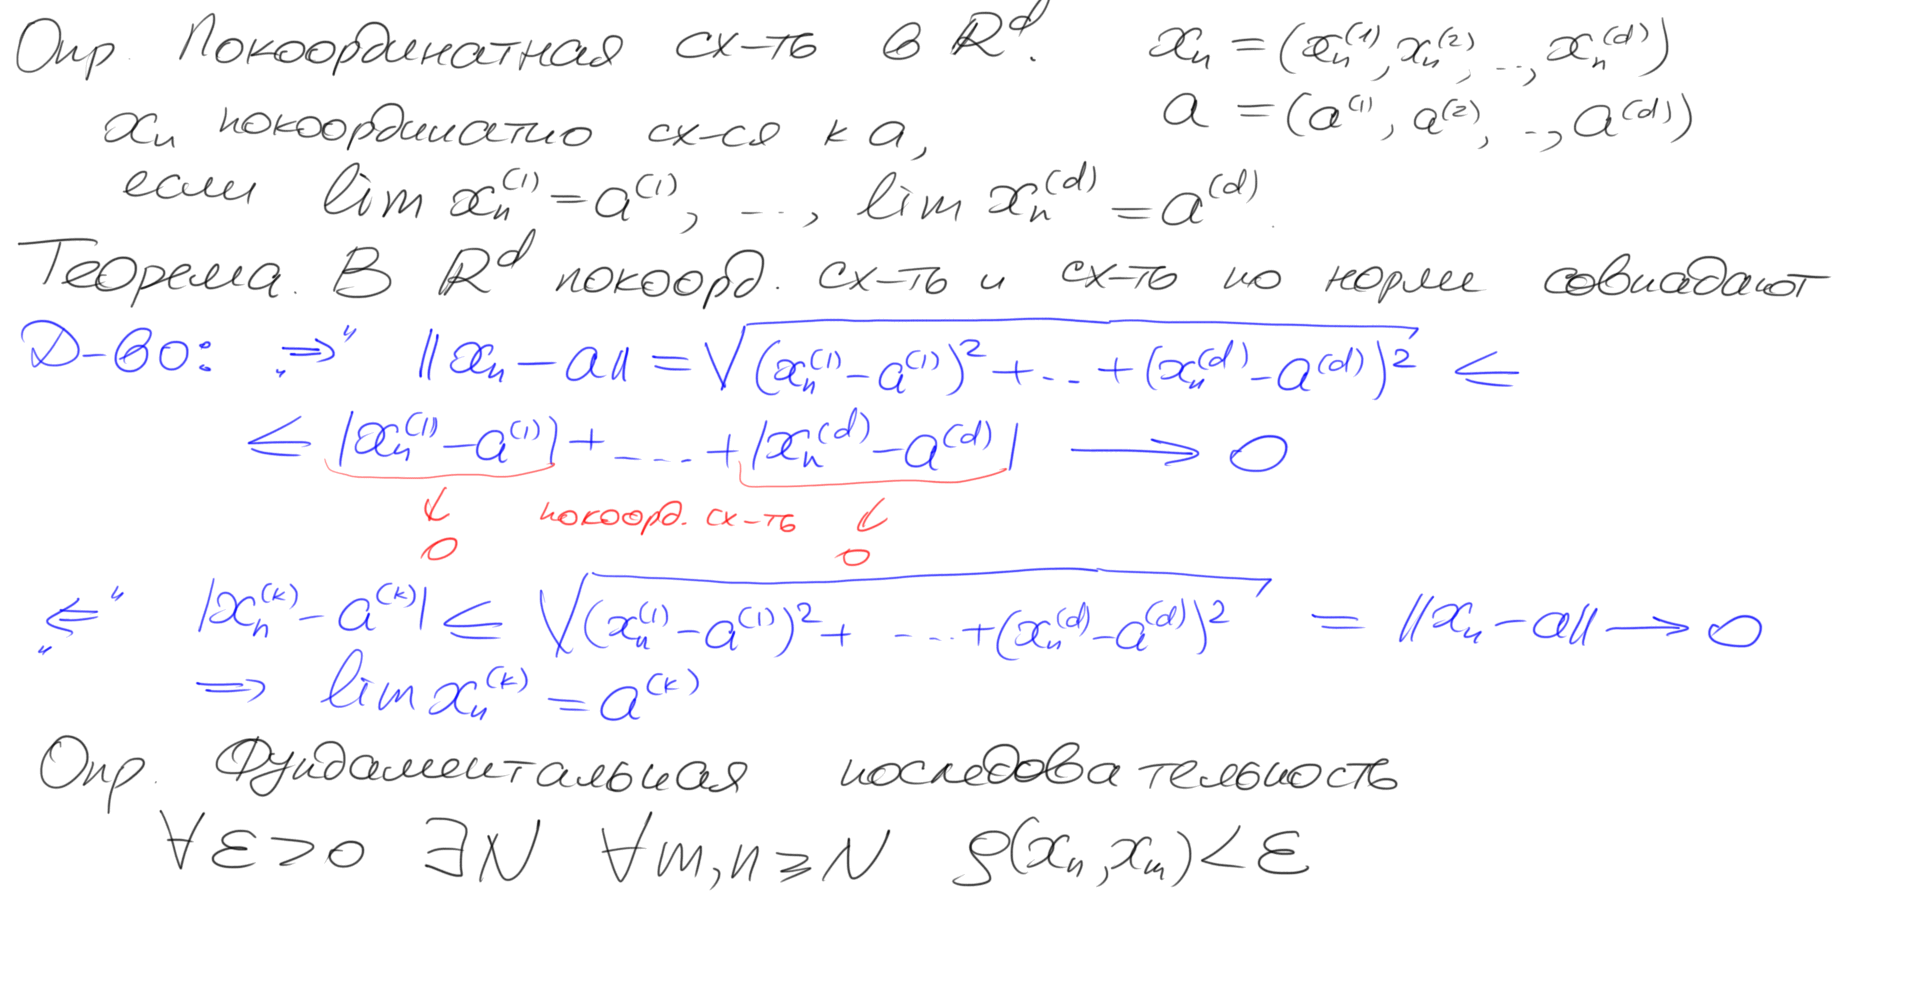 Опр. Покоординатная сх-ть в ℝᵈ. xₙ = (xₙ⁽¹⁾, xₙ⁽²⁾, ..., xₙ⁽ᵈ⁾)
xₙ покоординатно сх-ся к a, a = (a⁽¹⁾, a⁽²⁾, .., a⁽ᵈ⁾)
если lim xₙ⁽¹⁾ = a⁽¹⁾, ..., lim xₙ⁽ᵈ⁾ = a⁽ᵈ⁾.
Теорема. В ℝᵈ покоорд. сх-ть и сх-ть по норме совпадают
Д-во: „⇒" ||xₙ − a|| = √((xₙ⁽¹⁾ − a⁽¹⁾)² + ... + (xₙ⁽ᵈ⁾ − a⁽ᵈ⁾)²) ≤
≤ |xₙ⁽¹⁾ − a⁽¹⁾| + .... + |xₙ⁽ᵈ⁾ − a⁽ᵈ⁾| → 0
↓ покоорд. сх-ть ↓
0 0
„⇐" |xₙ⁽ᵏ⁾ − a⁽ᵏ⁾| ≤ √((xₙ⁽¹⁾ − a⁽¹⁾)² + .... + (xₙ⁽ᵈ⁾ − a⁽ᵈ⁾)²) = ||xₙ − a|| → 0
⇒ lim xₙ⁽ᵏ⁾ = a⁽ᵏ⁾
Опр. Фундаментальная последовательность
∀ε>0 ∃N ∀m,n ⩾ N ρ(xₙ, xₘ) < ε